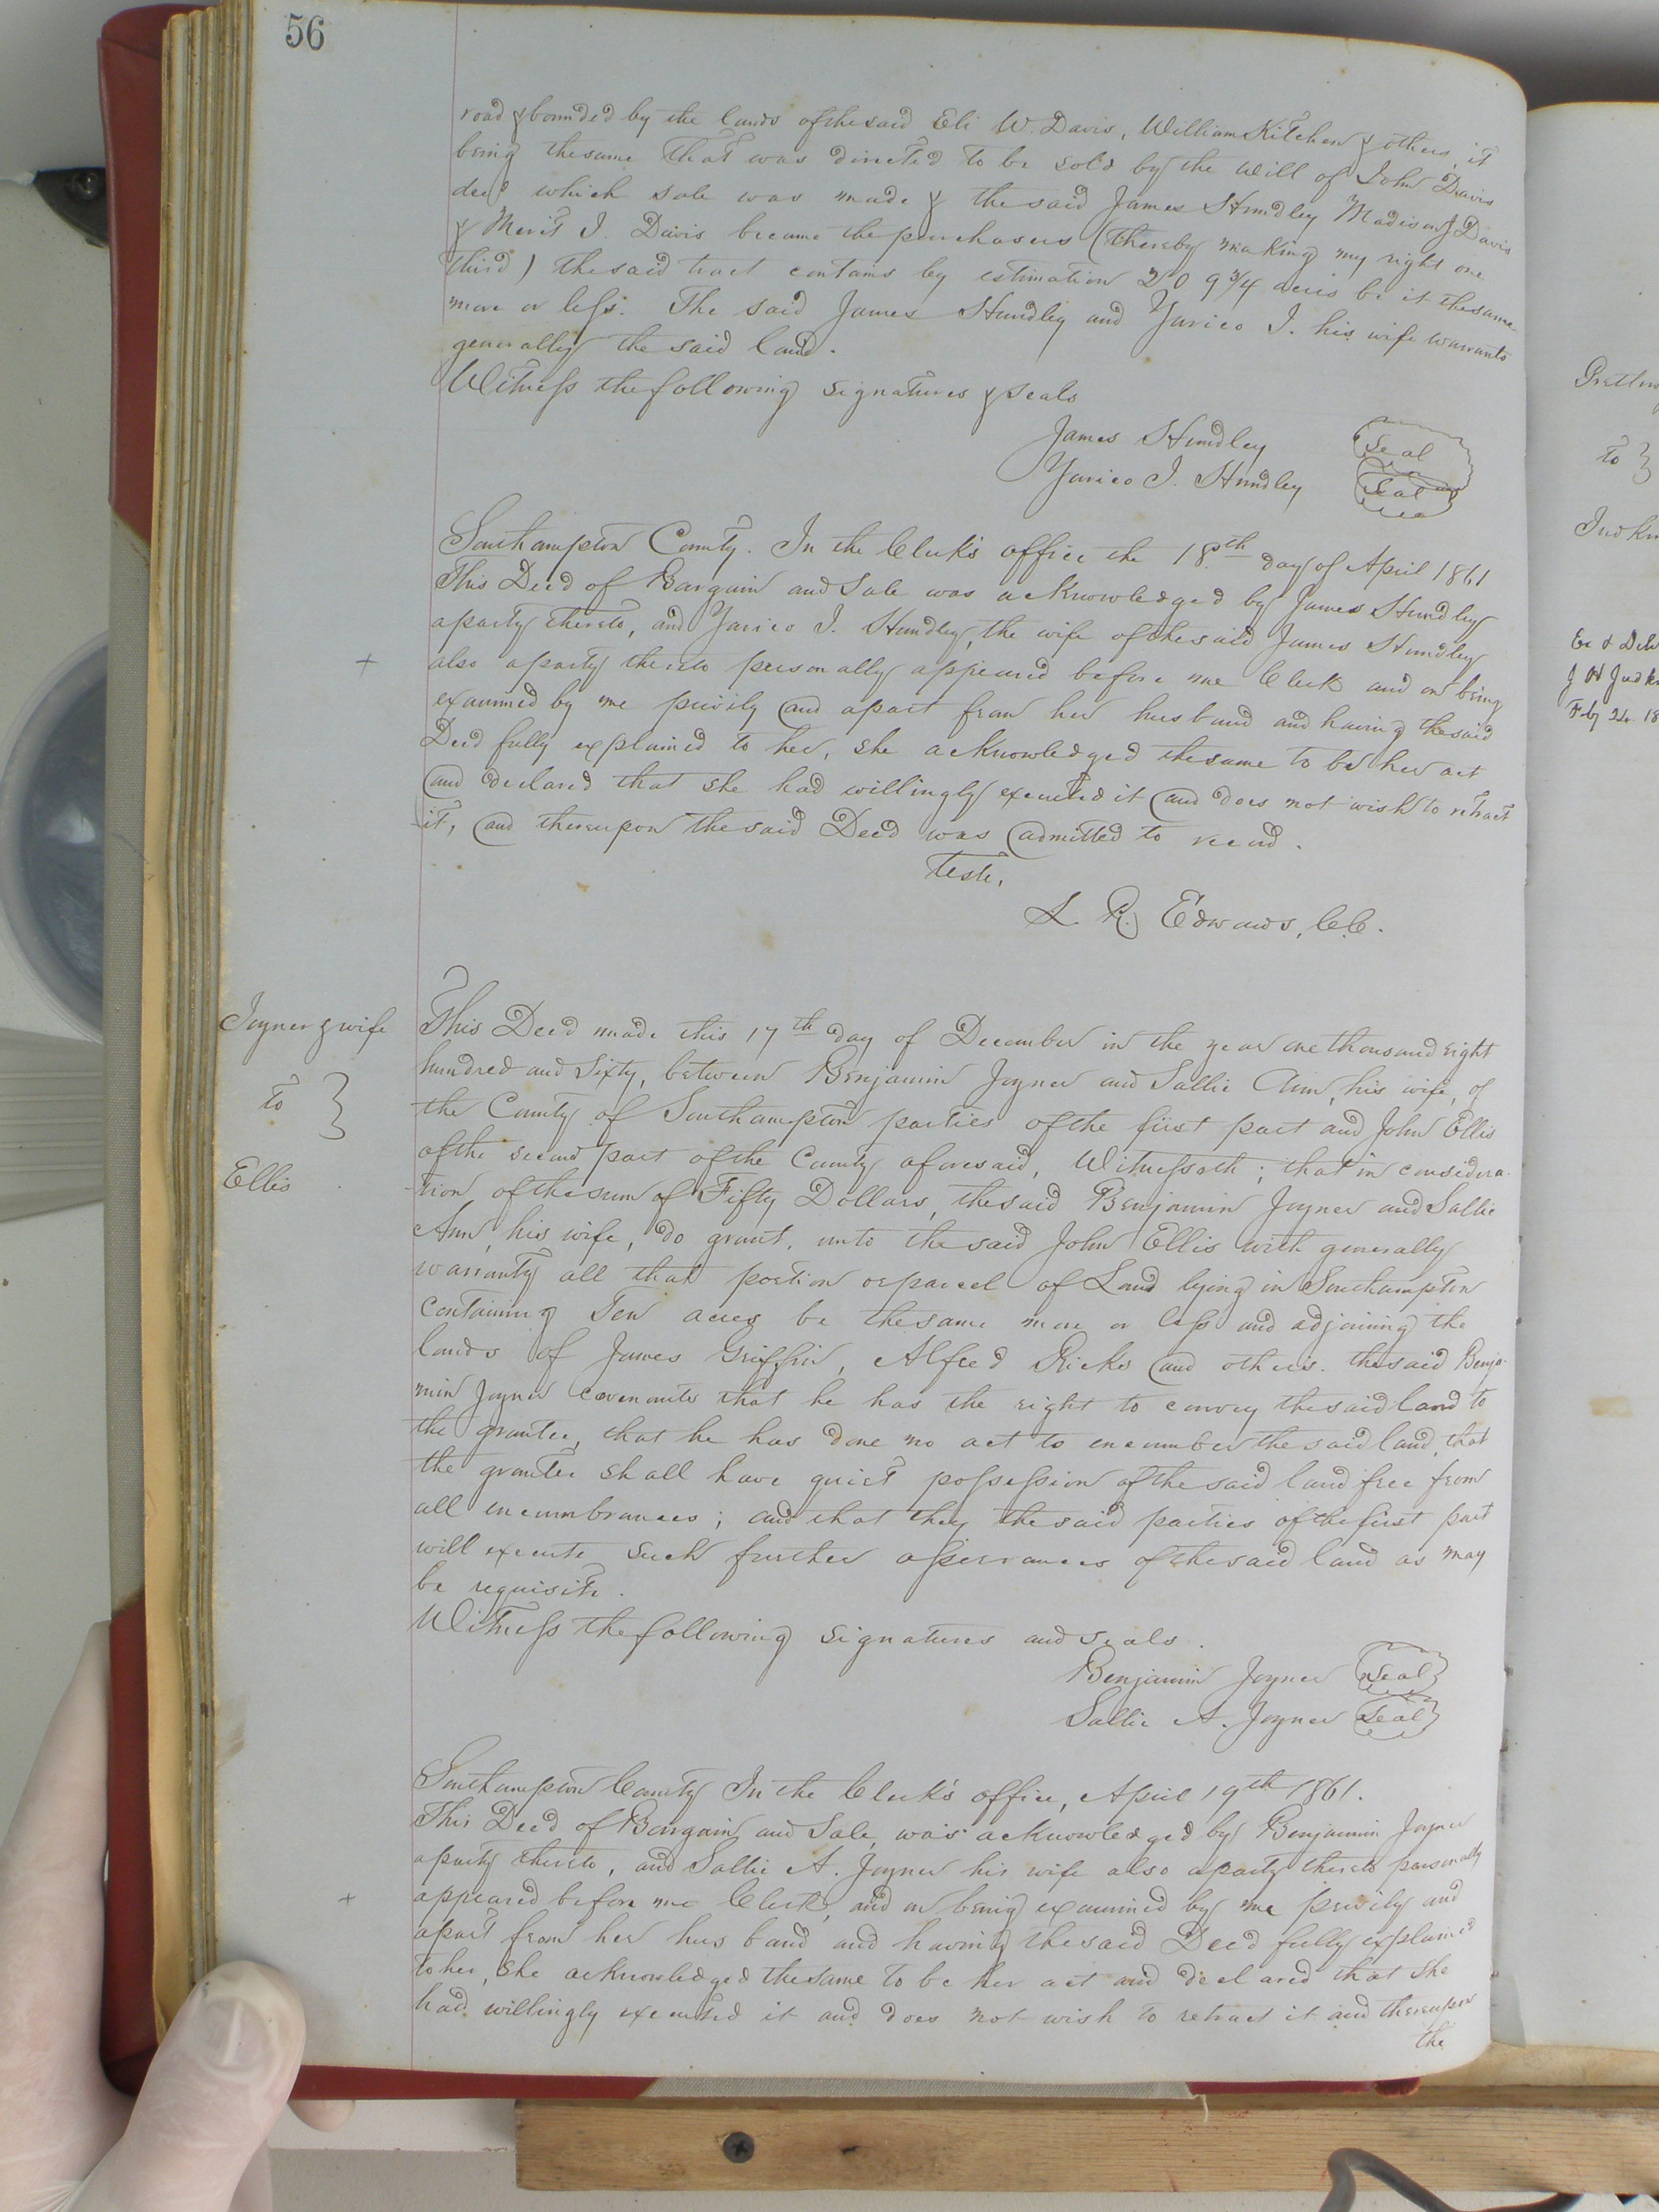 56
road & bounded by the lands of the said Eli W. Davis, William Kitchen & others, it
being the same that was directed to be sold by the Will of John Davis
decd which sale was made & the said James Hundley Madison J Davis
& Merit I. Davis became the purchasers (thereby making my right one
third) the said tract contains by estimation 209 3/4 acres be it the same
more or less. The said James Hundley and Yarico I. his wife warrants
generally the said land.
Witness the following signatures & seals
James Hundley Seal
Yarico I. Hundley Seal
Southampton County. In the Clerk's office the 18th day of April 1861
This Deed of Bargain and Sale was acknowledged by James Hundley
a party thereto, and Yarico I. Hundley, the wife of the said James Hundley
+ also a party thereto personally appeared before me Clerk and on being
examined by me privily and apart from her husband and having the said
Deed fully explained to her, she acknowledged the same to be her act
and declared that she had willingly executed it and does not wish to retract
it, and thereupon the said Deed was admitted to record.
Teste,
L R. Edwards, C.C.
Joyner & wife
to }
Ellis
This Deed made this 17th day of December in the year one thousand eight
hundred and Sixty, between Benjamin Joyner and Sallie Ann, his wife, of
the County of Southampton parties of the first part and John Ellis
of the second part of the County aforesaid, Witnesseth; that in considera-
tion of the sum of Fifty Dollars, the said Benjamin Joyner and Sallie
Ann, his wife, do grant, unto the said John Ellis with generally
warranty all that portion or parcel of Land lying in Southampton
containing Ten acres be the same more or less and adjoining the
lands of James Griffin, Alfred Ricks and others. the said Benja-
min Joyner covenants that he has the right to convey the said land to
the grantee, that he has done no act to encumber the said land, that
the grantee shall have quiet possession of the said land free from
all encumbrances; and that they the said parties of the first part
will execute such further assurances of the said land as may
be requisite.
Witness the following signatures and seals.
Benjamin Joyner Seal
Sallie A. Joyner Seal
Southampton County In the Clerk's office, April 19th 1861.
This Deed of Bargain and Sale, was acknowledged by Benjamin Joyner
a party thereto, and Sallie A. Joyner his wife also a party thereto personally
+ appeared before me Clerk, and on being examined by me privily and
apart from her husband and having the said Deed fully explained
to her, she acknowledged the same to be her act and declared that she
had willingly executed it and does not wish to retract it and thereupon
the
to }